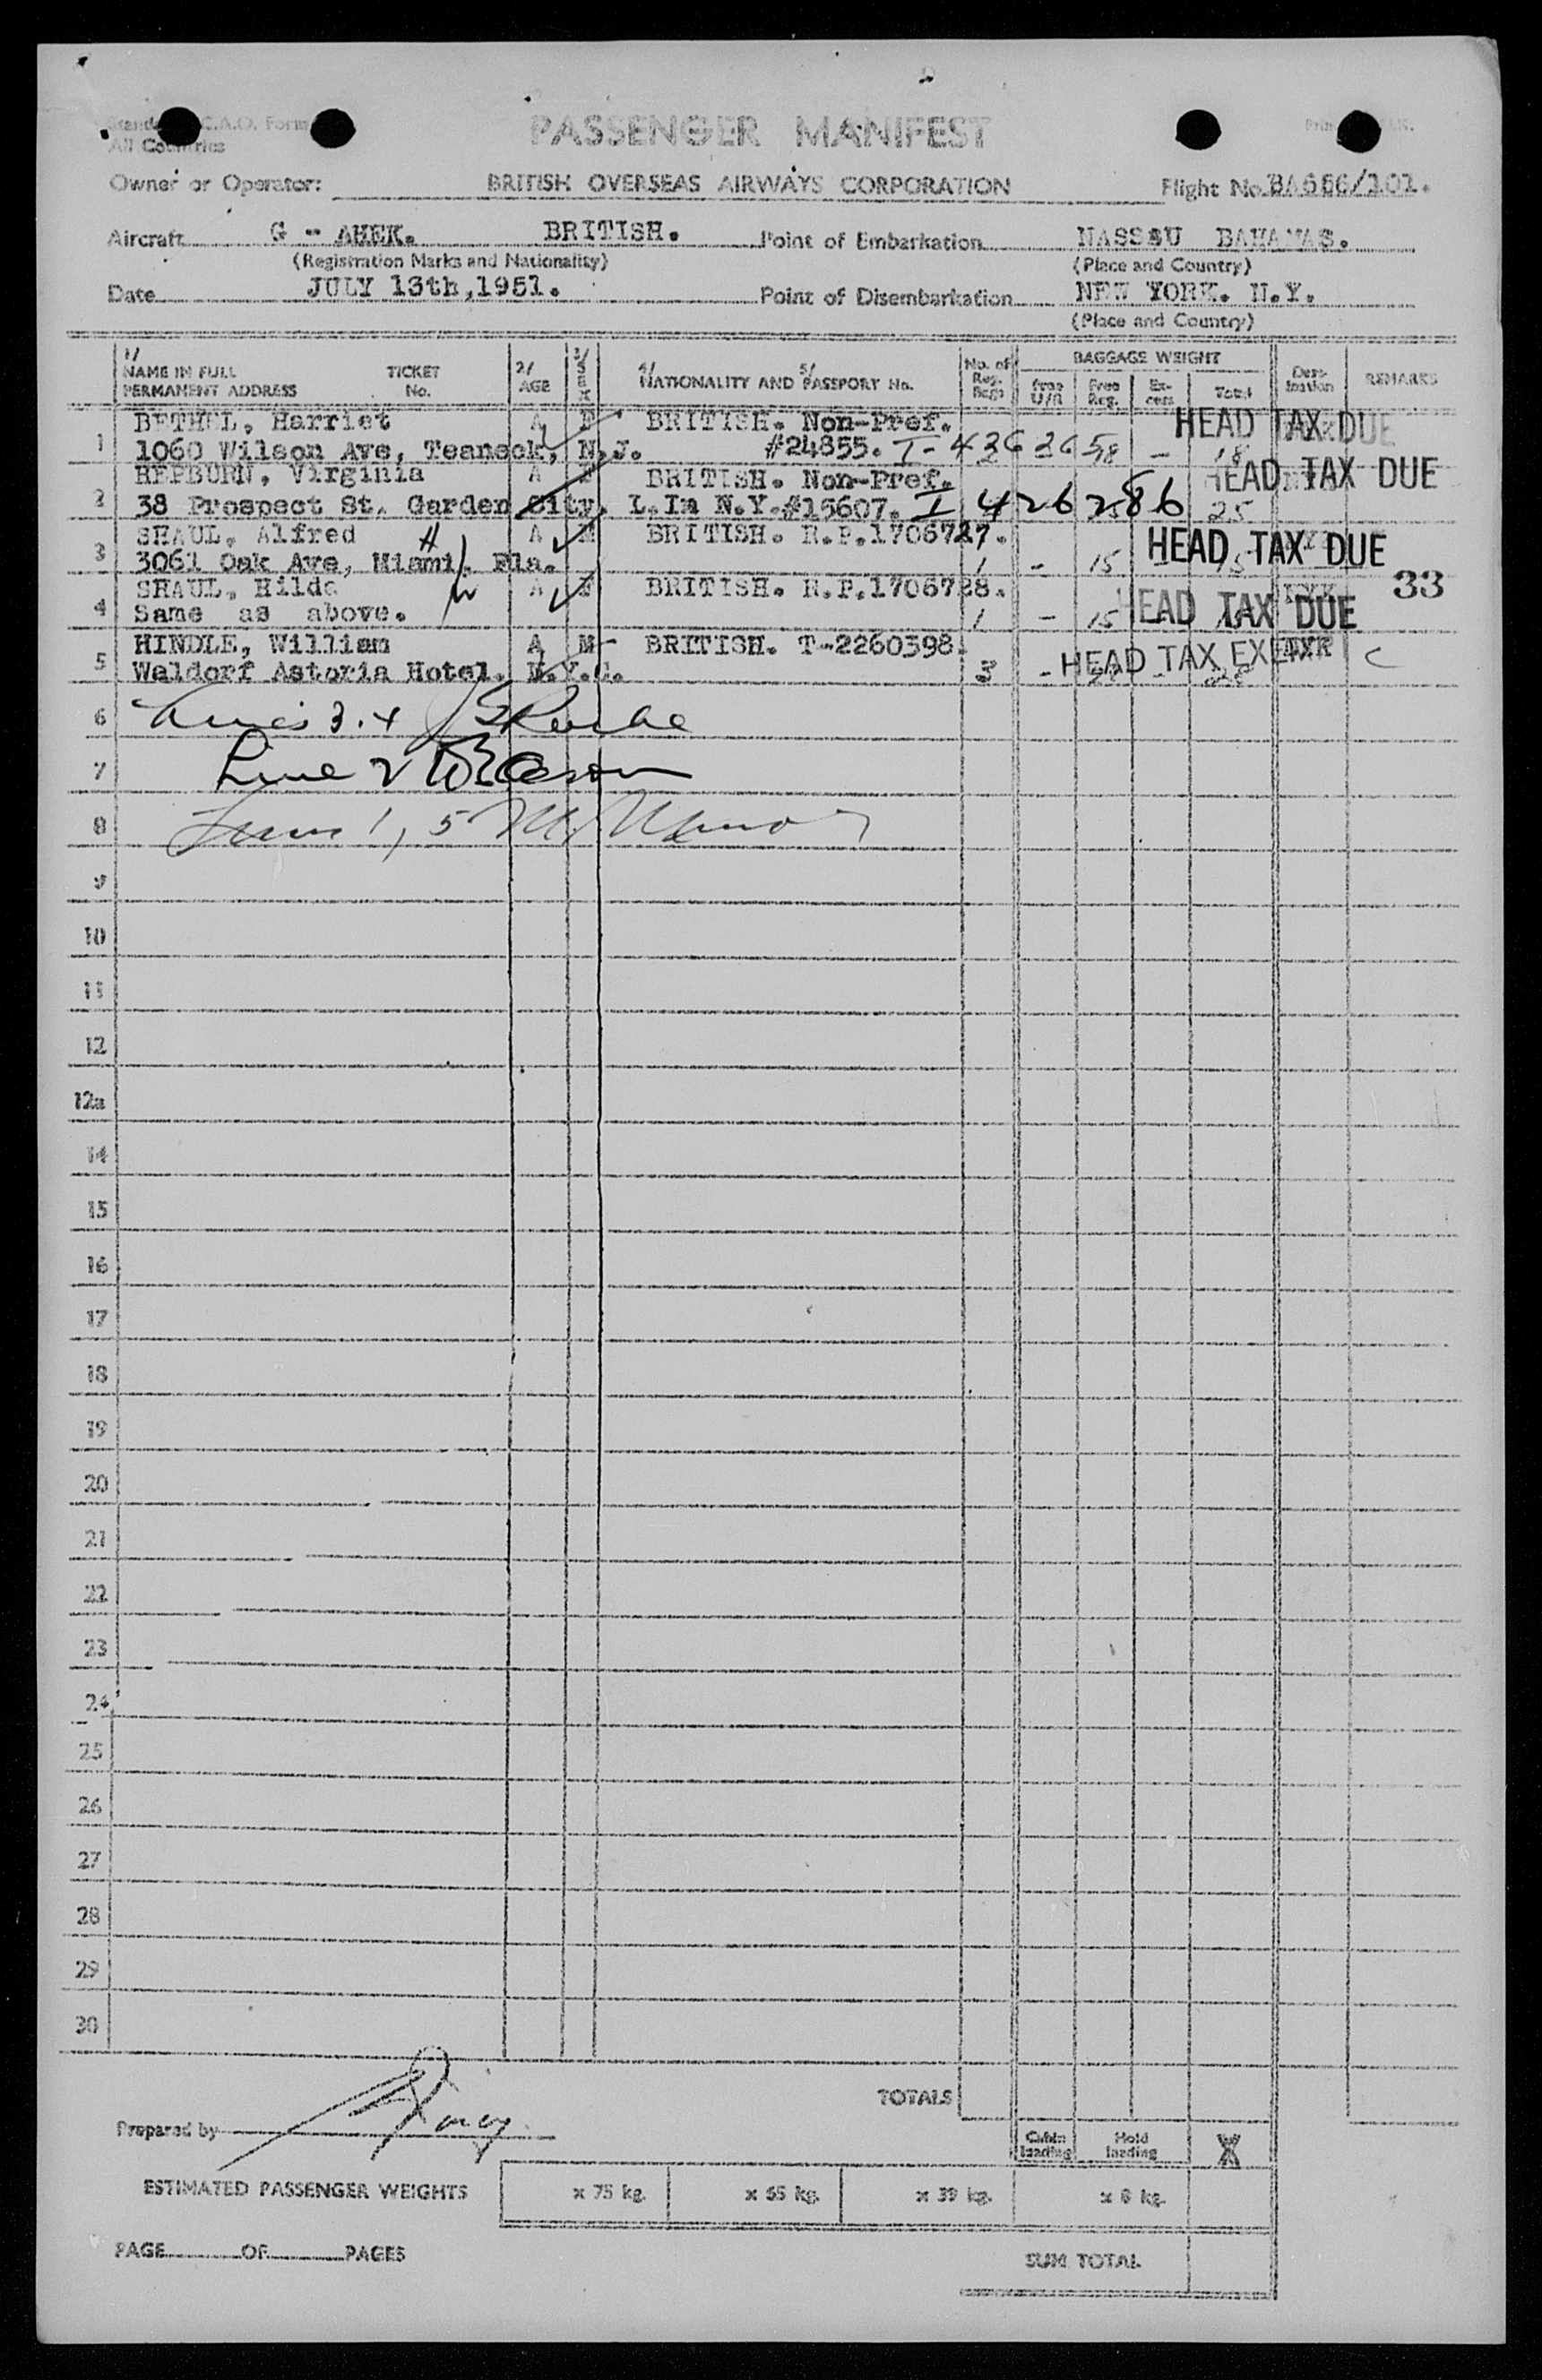 All Countries
PASSENGER MANIFEST
Owner or Operator: BRITISH OVERSEAS AIRWAYS CORPORATION Flight No.
Aircraft G - AHEK. BRITISH. Point of Embarkation NASSAU BAHAMAS.
(Registration Marks and Nationality) (Place and Country)
Date JULY 13th,1951. Point of Disembarkation NEW YORK. N.Y.
(Place and Country)
1/ NAME IN FULL PERMANENT ADDRESS TICKET No. 2/ AGE 3/ SEX 4/ 5/ NATIONALITY AND PASSPORT No. No. of Reg. Bags BAGGAGE WEIGHT Free U/A Free Reg. Ex-cess Total Dest-ination REMARKS
1 BETHEL, Harriet A F BRITISH. Non-Pref. HEAD TAX DUE
1060 Wilson Ave, Teaneck, N.J. #24855. 18
2 HEPBURN, Virginia A F BRITISH. Non-Pref. HEAD TAX DUE
38 Prospect St. Garden City, L.I. N.Y. #15607. I 426286 25
3 SHAUL, Alfred H A M BRITISH. R.P.1706727. HEAD TAX DUE
3061 Oak Ave, Miami, Fla. 1 - 15
4 SHAUL, Hilda W A F BRITISH. R.P.1706728. 33
Same as above. 1 - 15 HEAD TAX DUE
5 HINDLE, William A M BRITISH. T-2260398.
Waldorf Astoria Hotel. N.Y.C. 3 - HEAD TAX EXEMPT C
6 Lines 3.4
7 Line 2
8 1, 5
9
10
11
12
12a
14
15
16
17
18
19
20
21
22
23
24
25
26
27
28
29
30
TOTALS
Prepared by
Cabin loading Hold loading
ESTIMATED PASSENGER WEIGHTS x 75 kg. x 65 kg. x 39 kg. x 8 kg.
PAGE OF PAGES SUM TOTAL